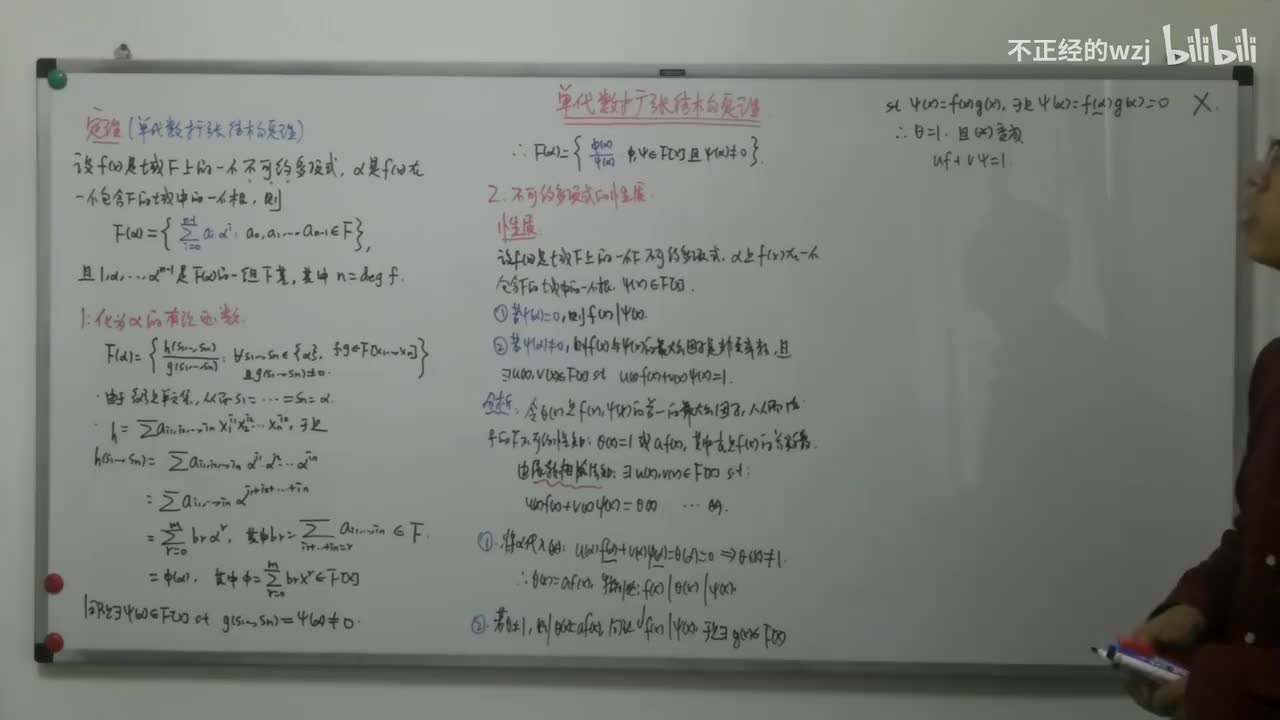 不正经的wzj bilibili
定理(单代数扩张结构定理)
设f(x)是域F上的一个不可约多项式, α是f(x)在
一个包含F的域中的一个根, 则
F(α)={ \sum_{i=0}^{n-1} a_i α^i : a_0,a_1,…a_{n-1}∈F },
且1,α,…,α^{n-1}是F(α)的一组F基, 其中 n=deg f.
1: 化为α的有理函数.
F(α)={ h(s_1…s_n)/g(s_1…s_n) : ∀s_1…s_n∈{α}, h,g∈F[x_1…x_n] 且g(s_1…s_n)≠0. }
由于 是单元集, 从而s_1=…=s_n=α.
h=∑a_{i_1,i_2…i_n} x_1^{i_1} x_2^{i_2}…x_n^{i_n}, 于是
h(s_1…s_n)= ∑a_{i_1,i_2…i_n} α^{i_1} α^{i_2}…α^{i_n}
=∑a_{i_1…i_n} α^{i_1+i_2+…+i_n}
=∑_{r=0}^{m} b_r α^r, 其中b_r=∑_{i_1+…+i_n=r} a_{i_1…i_n}∈F.
=φ(α), 其中φ=∑_{r=0}^{m} b_r x^r∈F[x]
同理∃ψ(x)∈F[x] st g(s_1…s_n)=ψ(α)≠0.
单代数扩张结构定理
∴F(α)={ φ(α)/ψ(α) : φ,ψ∈F[x]且ψ(α)≠0 }.
2: 不可约多项式的性质.
性质
设f(x)是域F上的一个不可约多项式, α是f(x)在一个
包含F的域中的一个根. ψ(x)∈F[x].
①若ψ(α)=0,则f(x)|ψ(x).
②若ψ(α)≠0, 则f(x)与ψ(x)的最大公因子是非零常数, 且
∃u(x),v(x)∈F[x] st u(x)f(x)+v(x)ψ(x)=1.
分析: 令θ(x)是f(x),ψ(x)的首一的最大公因子, 从而由
f的不可约性知: θ(x)=1或af(x), 其中 是f(x)的首项系数.
由辗转相除法知: ∃u(x),v(x)∈F[x] s.t:
u(x)f(x)+v(x)ψ(x)=θ(x) …
①. 将α代入 : u(α)f(α)+v(α)ψ(α)=θ(α)=0 ⇒θ(x)≠1.
∴θ(x)=af(x), 特别地: f(x)|θ(x)|ψ(x).
②. 若θ≠1, 则θ(x)=af(x), 同理f(x)|ψ(x). 于是∃g(x)∈F[x]
st ψ(x)=f(x)g(x), 于是ψ(α)=f(α)g(α)=0 ×.
∴θ=1. 且 变成
uf+vψ=1.